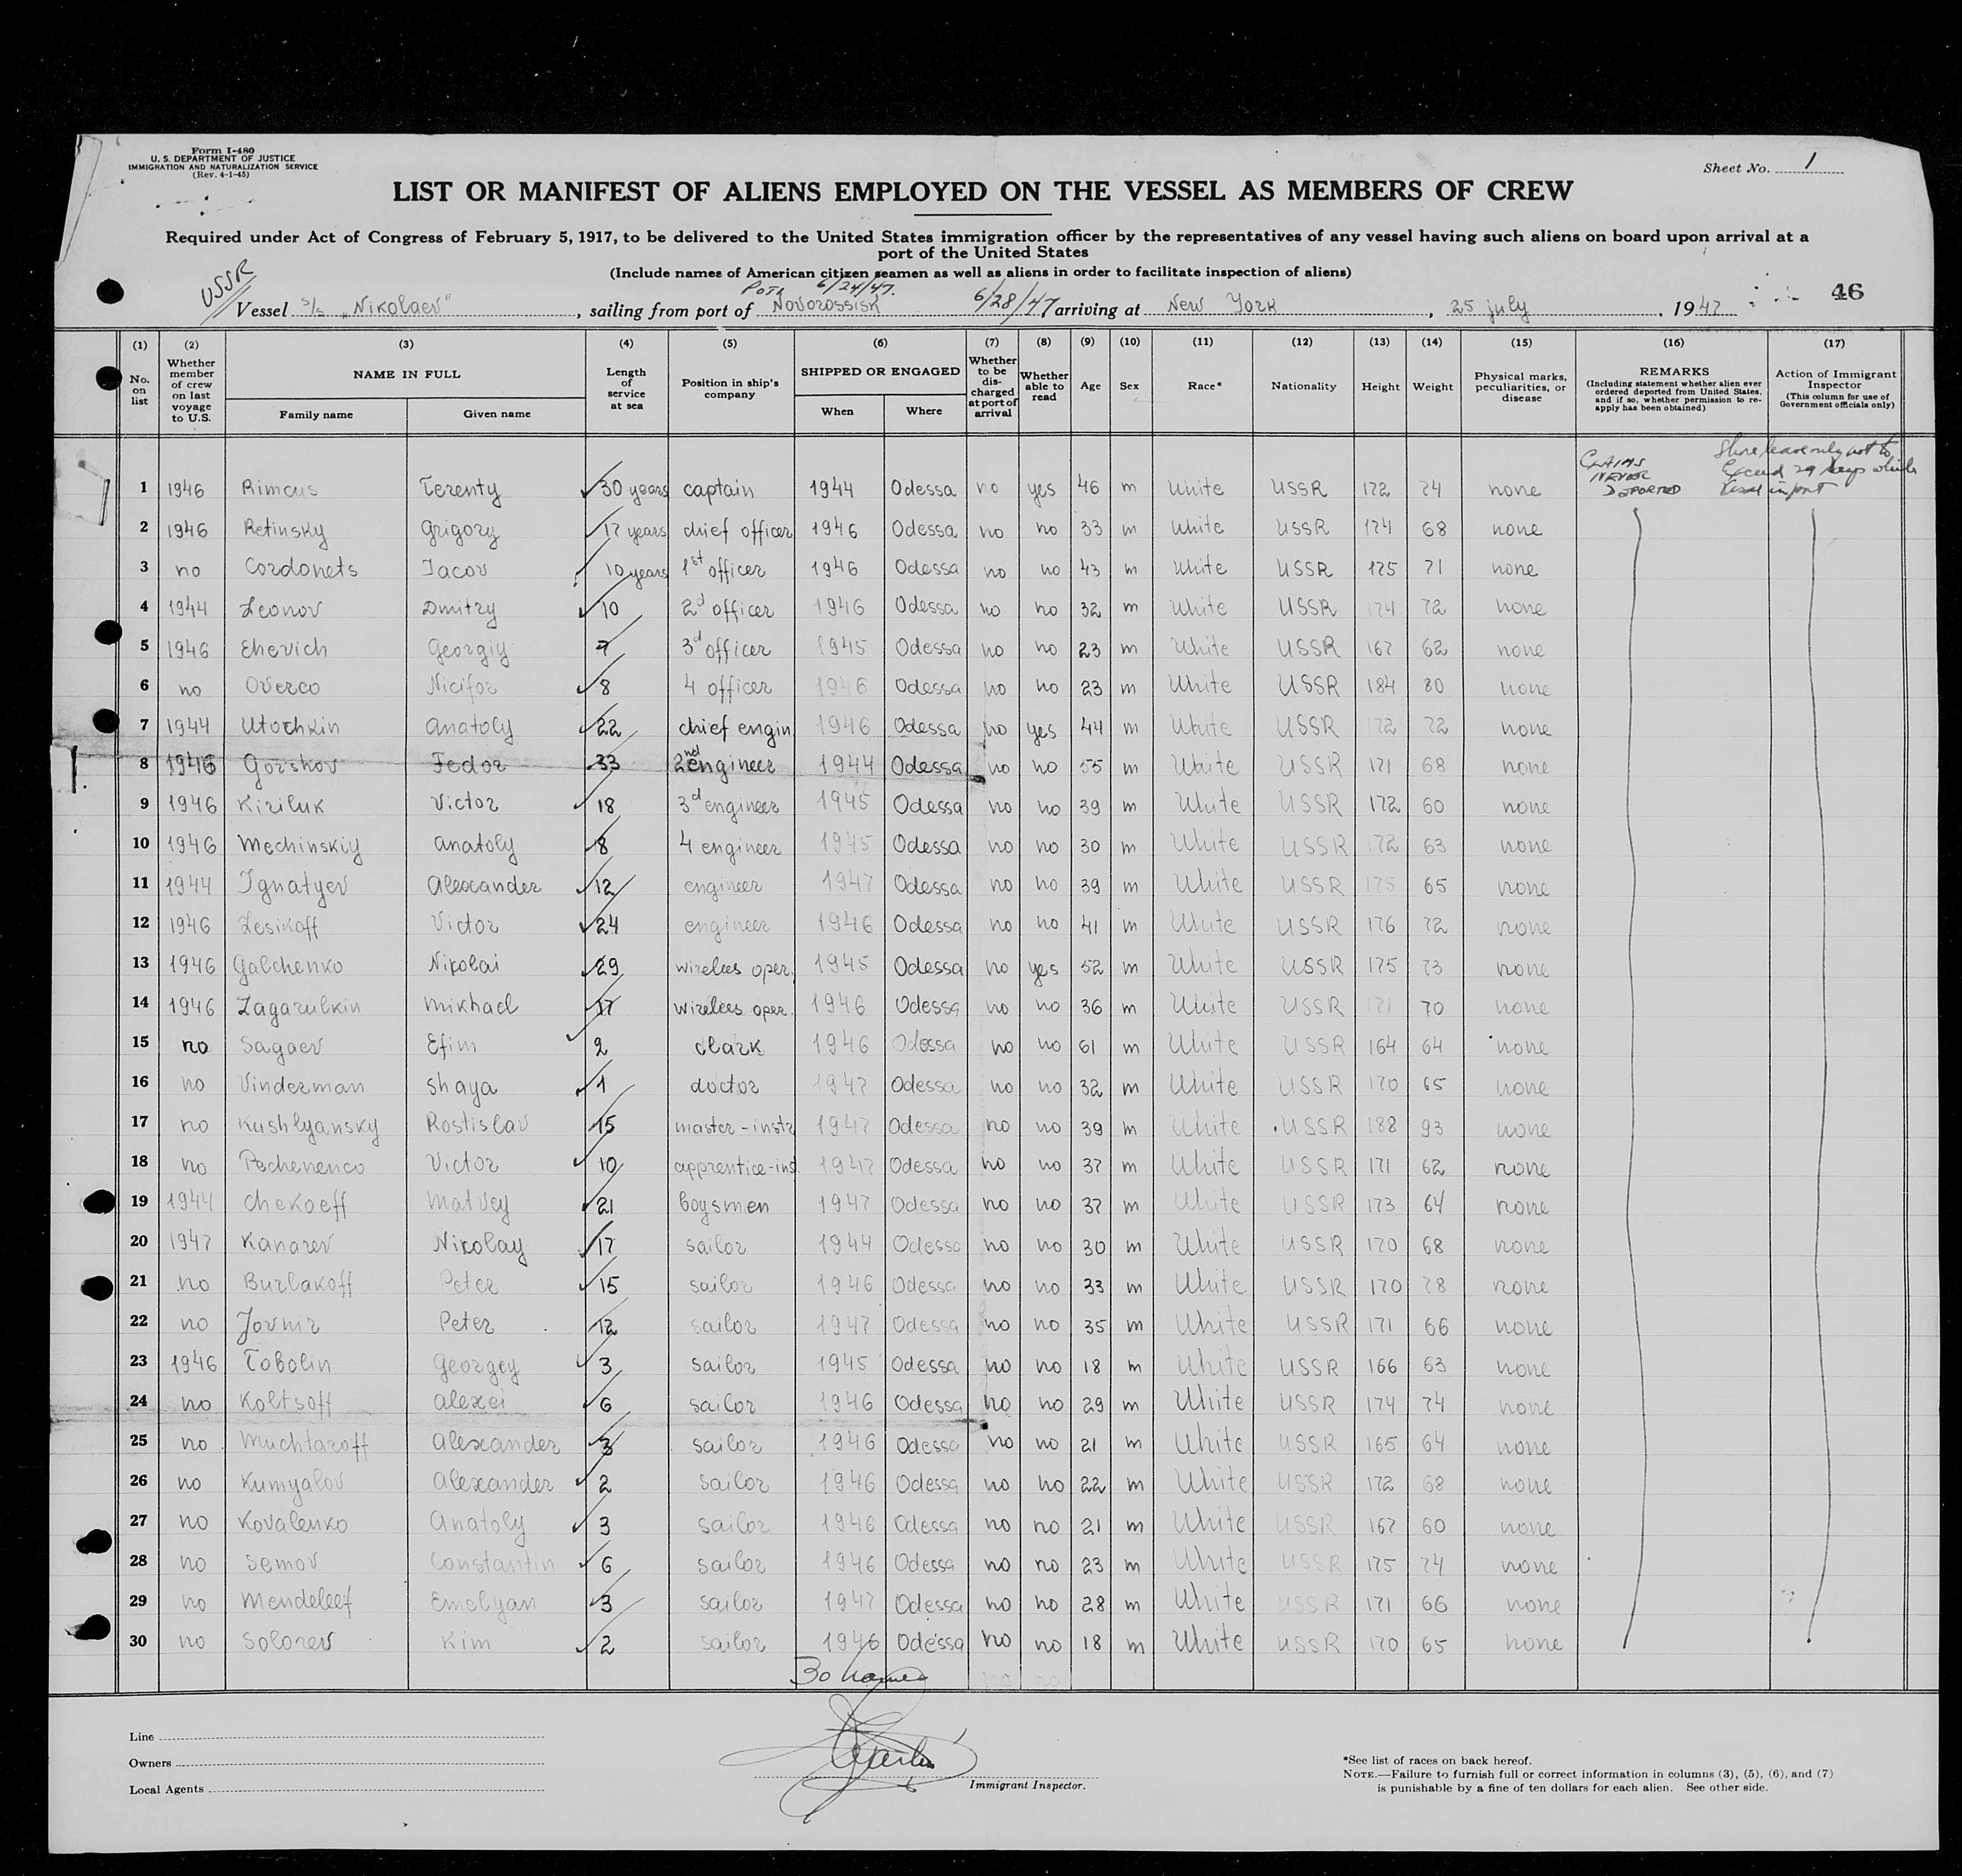 Form I-480
U. S. DEPARTMENT OF JUSTICE
IMMIGRATION AND NATURALIZATION SERVICE
(Rev. 4-1-45)
Sheet No. 1
LIST OR MANIFEST OF ALIENS EMPLOYED ON THE VESSEL AS MEMBERS OF CREW
Required under Act of Congress of February 5, 1917, to be delivered to the United States immigration officer by the representatives of any vessel having such aliens on board upon arrival at a
port of the United States
(Include names of American citizen seamen as well as aliens in order to facilitate inspection of aliens)
USSR
Poti 6/24/47.
Vessel s/s „Nikolaev", sailing from port of Novorossisk 6/28/47 arriving at New York, 25 july, 1947
46
(1) (2) (3) (4) (5) (6) (7) (8) (9) (10) (11) (12) (13) (14) (15) (16) (17)
No. on list
Whether member of crew on last voyage to U.S.
NAME IN FULL
Family name
Given name
Length of service at sea
Position in ship's company
SHIPPED OR ENGAGED
When
Where
Whether to be discharged at port of arrival
Whether able to read
Age
Sex
Race*
Nationality
Height
Weight
Physical marks, peculiarities, or disease
REMARKS
(Including statement whether alien ever ordered deported from United States, and if so, whether permission to re-apply has been obtained)
Action of Immigrant Inspector
(This column for use of Government officials only)
CLAIMS NEVER DEPORTED
Shore leave only not to exceed 29 days while vessel in port
1 1946 Rimcus Terenty 30 years captain 1944 Odessa no yes 46 m White USSR 172 74 none
2 1946 Retinsky Grigory 17 years chief officer 1946 Odessa no no 33 m White USSR 174 68 none
3 no Cordonets Jacov 10 years 1st officer 1946 Odessa no no 43 m White USSR 175 71 none
4 1944 Leonov Dmitry 10 2d officer 1946 Odessa no no 32 m White USSR 174 72 none
5 1946 Ehevich Georgiy 7 3d officer 1945 Odessa no no 23 m White USSR 167 62 none
6 no Overco Nicifor 8 4 officer 1946 Odessa no no 23 m White USSR 184 80 none
7 1944 Utochkin Anatoly 22 chief engin 1946 Odessa no yes 44 m White USSR 172 72 none
8 1946 Gorshov Fedor 33 2nd engineer 1944 Odessa no no 55 m White USSR 171 68 none
9 1946 Kiriluk Victor 18 3d engineer 1945 Odessa no no 39 m White USSR 172 60 none
10 1946 Mechinskiy Anatoly 8 4 engineer 1945 Odessa no no 30 m White USSR 172 63 none
11 1944 Ignatyev Alexander 12 engineer 1947 Odessa no no 39 m White USSR 175 65 none
12 1946 Lesikoff Victor 24 engineer 1946 Odessa no no 41 m White USSR 176 72 none
13 1946 Galchenko Nikolai 29 wirelees oper. 1945 Odessa no yes 52 m White USSR 175 73 none
14 1946 Zagarulkin Mikhael 17 wirelees oper. 1946 Odessa no no 36 m White USSR 171 70 none
15 no Sagaev Efim 2 clark 1946 Odessa no no 61 m White USSR 164 64 none
16 no Vinderman Shaya 1 doctor 1947 Odessa no no 32 m White USSR 170 65 none
17 no Kushlyansky Rostislav 15 master-instr 1947 Odessa no no 39 m White USSR 188 93 none
18 no Pechenenco Victor 10 apprentice-inst. 1947 Odessa no no 37 m White USSR 171 62 none
19 1944 Chekoeff Matvey 21 boysmen 1947 Odessa no no 37 m White USSR 173 64 none
20 1947 Kanarev Nikolay 17 sailor 1944 Odessa no no 30 m White USSR 170 68 none
21 no Burlakoff Peter 15 sailor 1946 Odessa no no 33 m White USSR 170 78 none
22 no Jovnir Peter 12 sailor 1947 Odessa no no 35 m White USSR 171 66 none
23 1946 Tobolin Georgey 3 sailor 1945 Odessa no no 18 m White USSR 166 63 none
24 no Koltsoff Alexei 6 sailor 1946 Odessa no no 29 m White USSR 174 74 none
25 no Muchtaroff Alexander 3 sailor 1946 Odessa no no 21 m White USSR 165 64 none
26 no Kumyalov Alexander 2 sailor 1946 Odessa no no 22 m White USSR 172 68 none
27 no Kovalenko Anatoly 3 sailor 1946 Odessa no no 21 m White USSR 167 60 none
28 no Semov Constantin 6 sailor 1946 Odessa no no 23 m White USSR 175 74 none
29 no Mendeleef Emelyan 3 sailor 1947 Odessa no no 28 m White USSR 171 66 none
30 no Solorev Kim 2 sailor 1946 Odessa no no 18 m White USSR 170 65 none
30 names
Line
Owners
Local Agents
Immigrant Inspector.
*See list of races on back hereof.
NOTE.—Failure to furnish full or correct information in columns (3), (5), (6), and (7)
is punishable by a fine of ten dollars for each alien. See other side.